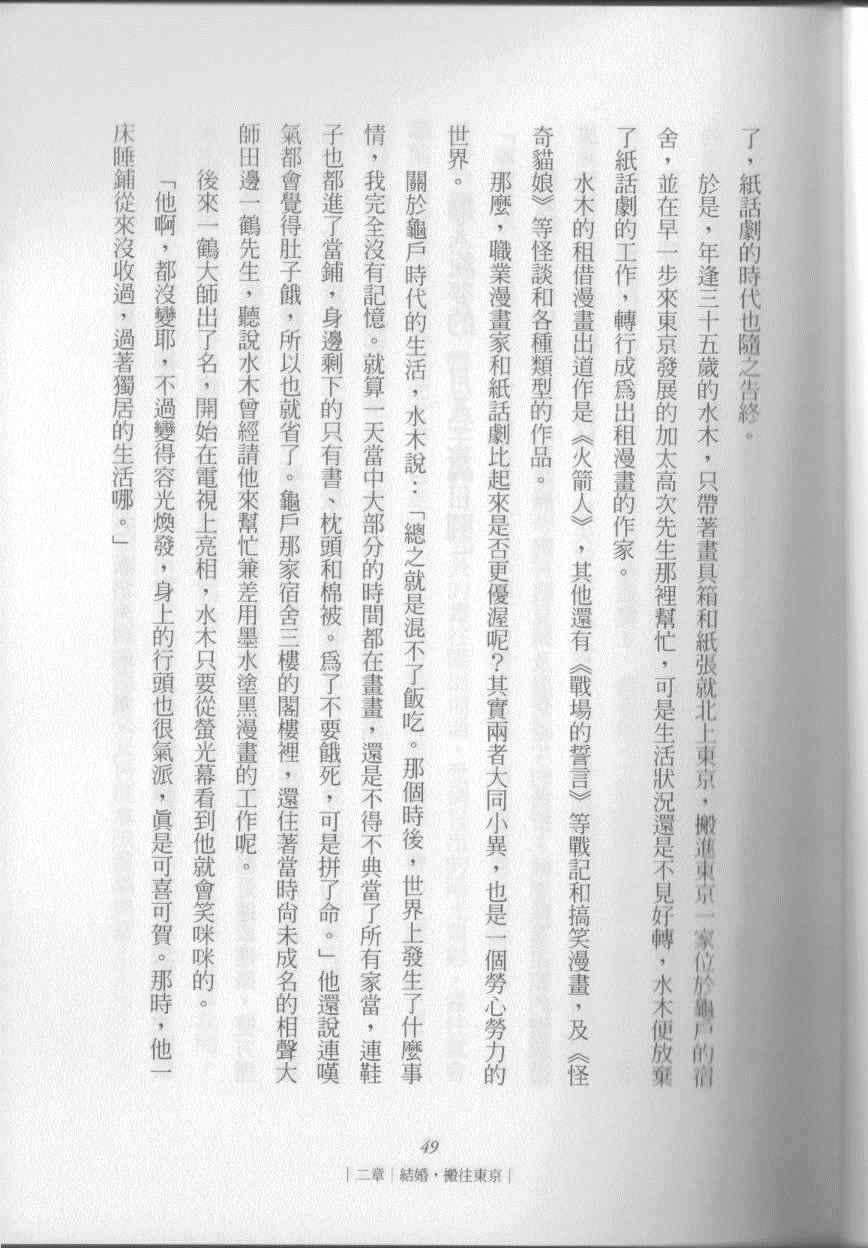 了，紙話劇的時代也隨之告終。
於是，年逢三十五歲的水木，只帶著畫具箱和紙張就北上東京，搬進東京一家位於龜戶的宿
舍，並在早一步來東京發展的加太高次先生那裡幫忙，可是生活狀況還是不見好轉，水木便放棄
了紙話劇的工作，轉行成為出租漫畫的作家。
水木的租借漫畫出道作是《火箭人》，其他還有《戰場的誓言》等戰記和搞笑漫畫，及《怪
奇貓娘》等怪談和各種類型的作品。
那麼，職業漫畫家和紙話劇比起來是否更優渥呢？其實兩者大同小異，也是一個勞心勞力的
世界。
關於龜戶時代的生活，水木說：「總之就是混不了飯吃。那個時後，世界上發生了什麼事
情，我完全沒有記憶。就算一天當中大部分的時間都在畫畫，還是不得不典當了所有家當，連鞋
子也都進了當鋪，身邊剩下的只有書、枕頭和棉被。為了不要餓死，可是拼了命。」他還說連嘆
氣都會覺得肚子餓，所以也就省了。龜戶那家宿舍三樓的閣樓裡，還住著當時尚未成名的相聲大
師田邊一鶴先生，聽說水木曾經請他來幫忙兼差用墨水塗黑漫畫的工作呢。
後來一鶴大師出了名，開始在電視上亮相，水木只要從螢光幕看到他就會笑咪咪的。
「他啊，都沒變耶，不過變得容光煥發，身上的行頭也很氣派，真是可喜可賀。那時，他一
床睡鋪從來沒收過，過著獨居的生活哪。」
49
｜二章｜結婚，搬往東京｜